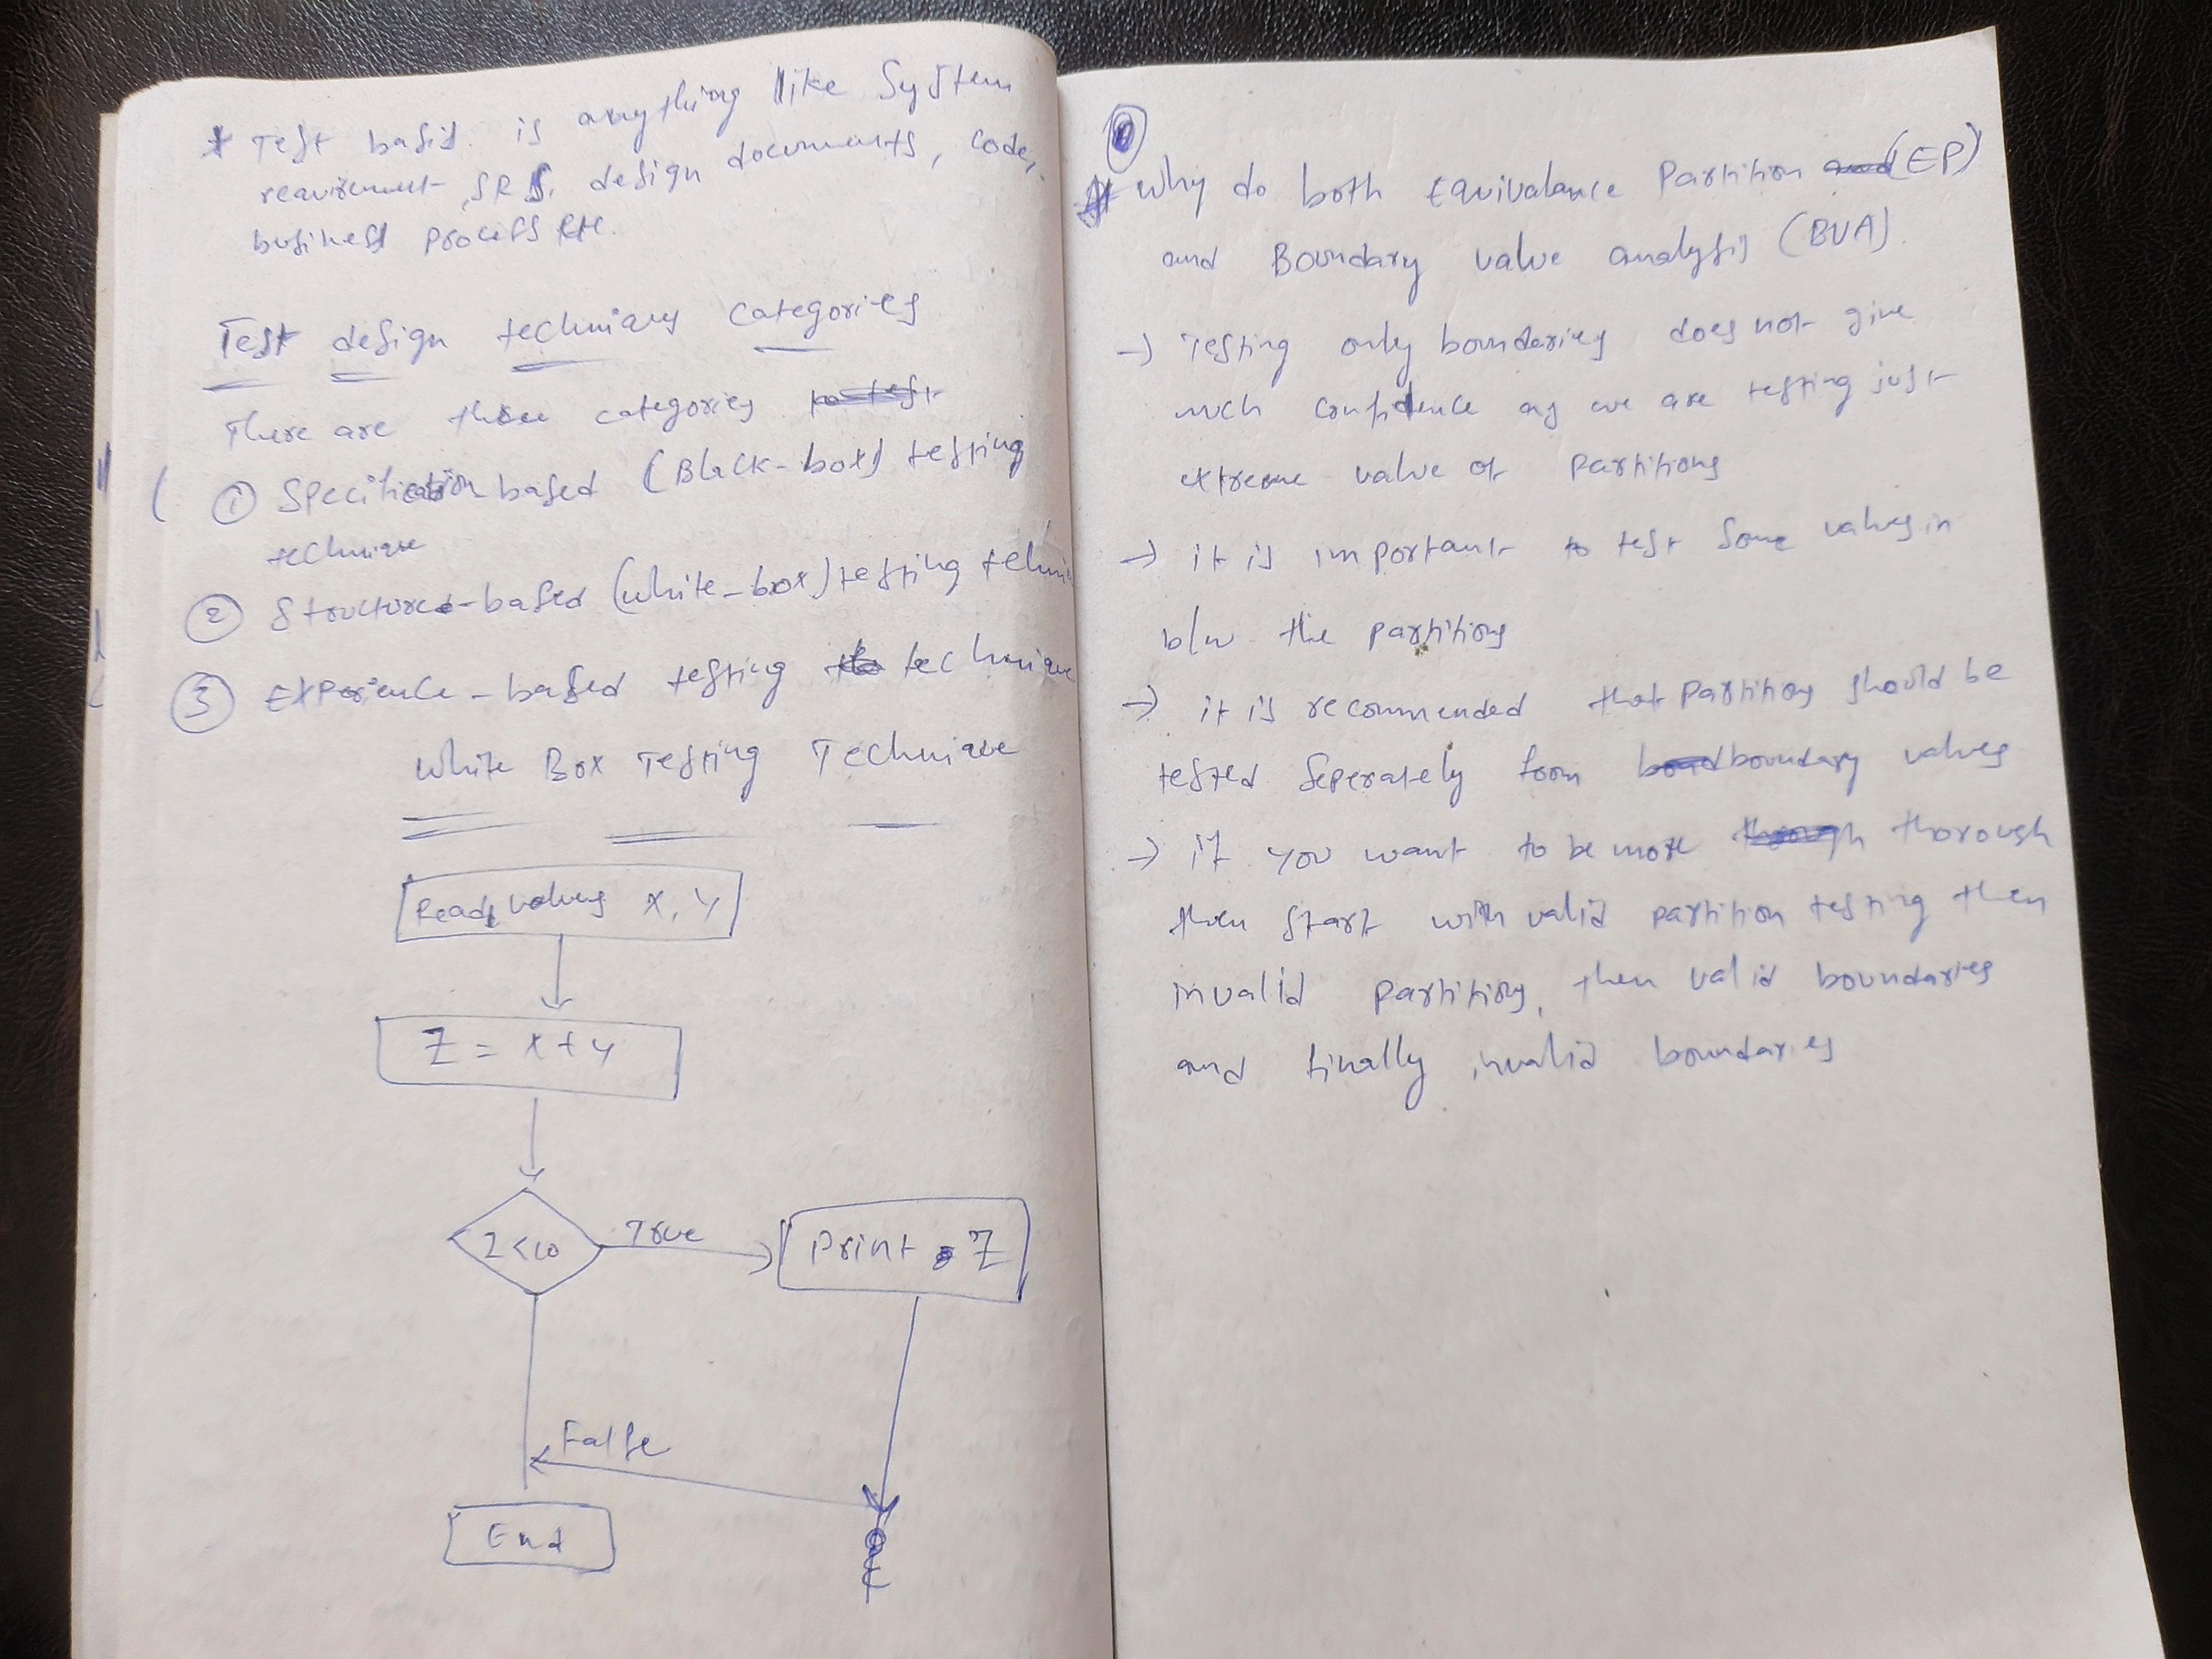 * Test basis is anything like System
reauirement, SRS, design documents, code,
business process etc.
Test design techniques categories
There are three categories
① Specification based (Black-box) testing
techniaue
② Structured-based (White-box) testing
③ Experience-based testing techniaue
White Box Testing Techniaue
Read values x, y
Z = x + y
Z<10
True
Print Z
False
End
* Why do both Equivalance Partition (EP)
and Boundary value analysis (BVA).
→ Testing only boundaries does not give
much confidence as we are testing just
extreme value of Partitions
→ it is important to test some values in
b/w the partitions
→ it is recommended that Partitions should be
tested seperately from boundary values
→ if you want to be more thorough
then start with valid partition testing then
invalid partitions, then valid boundaries
and finally invalid boundaries